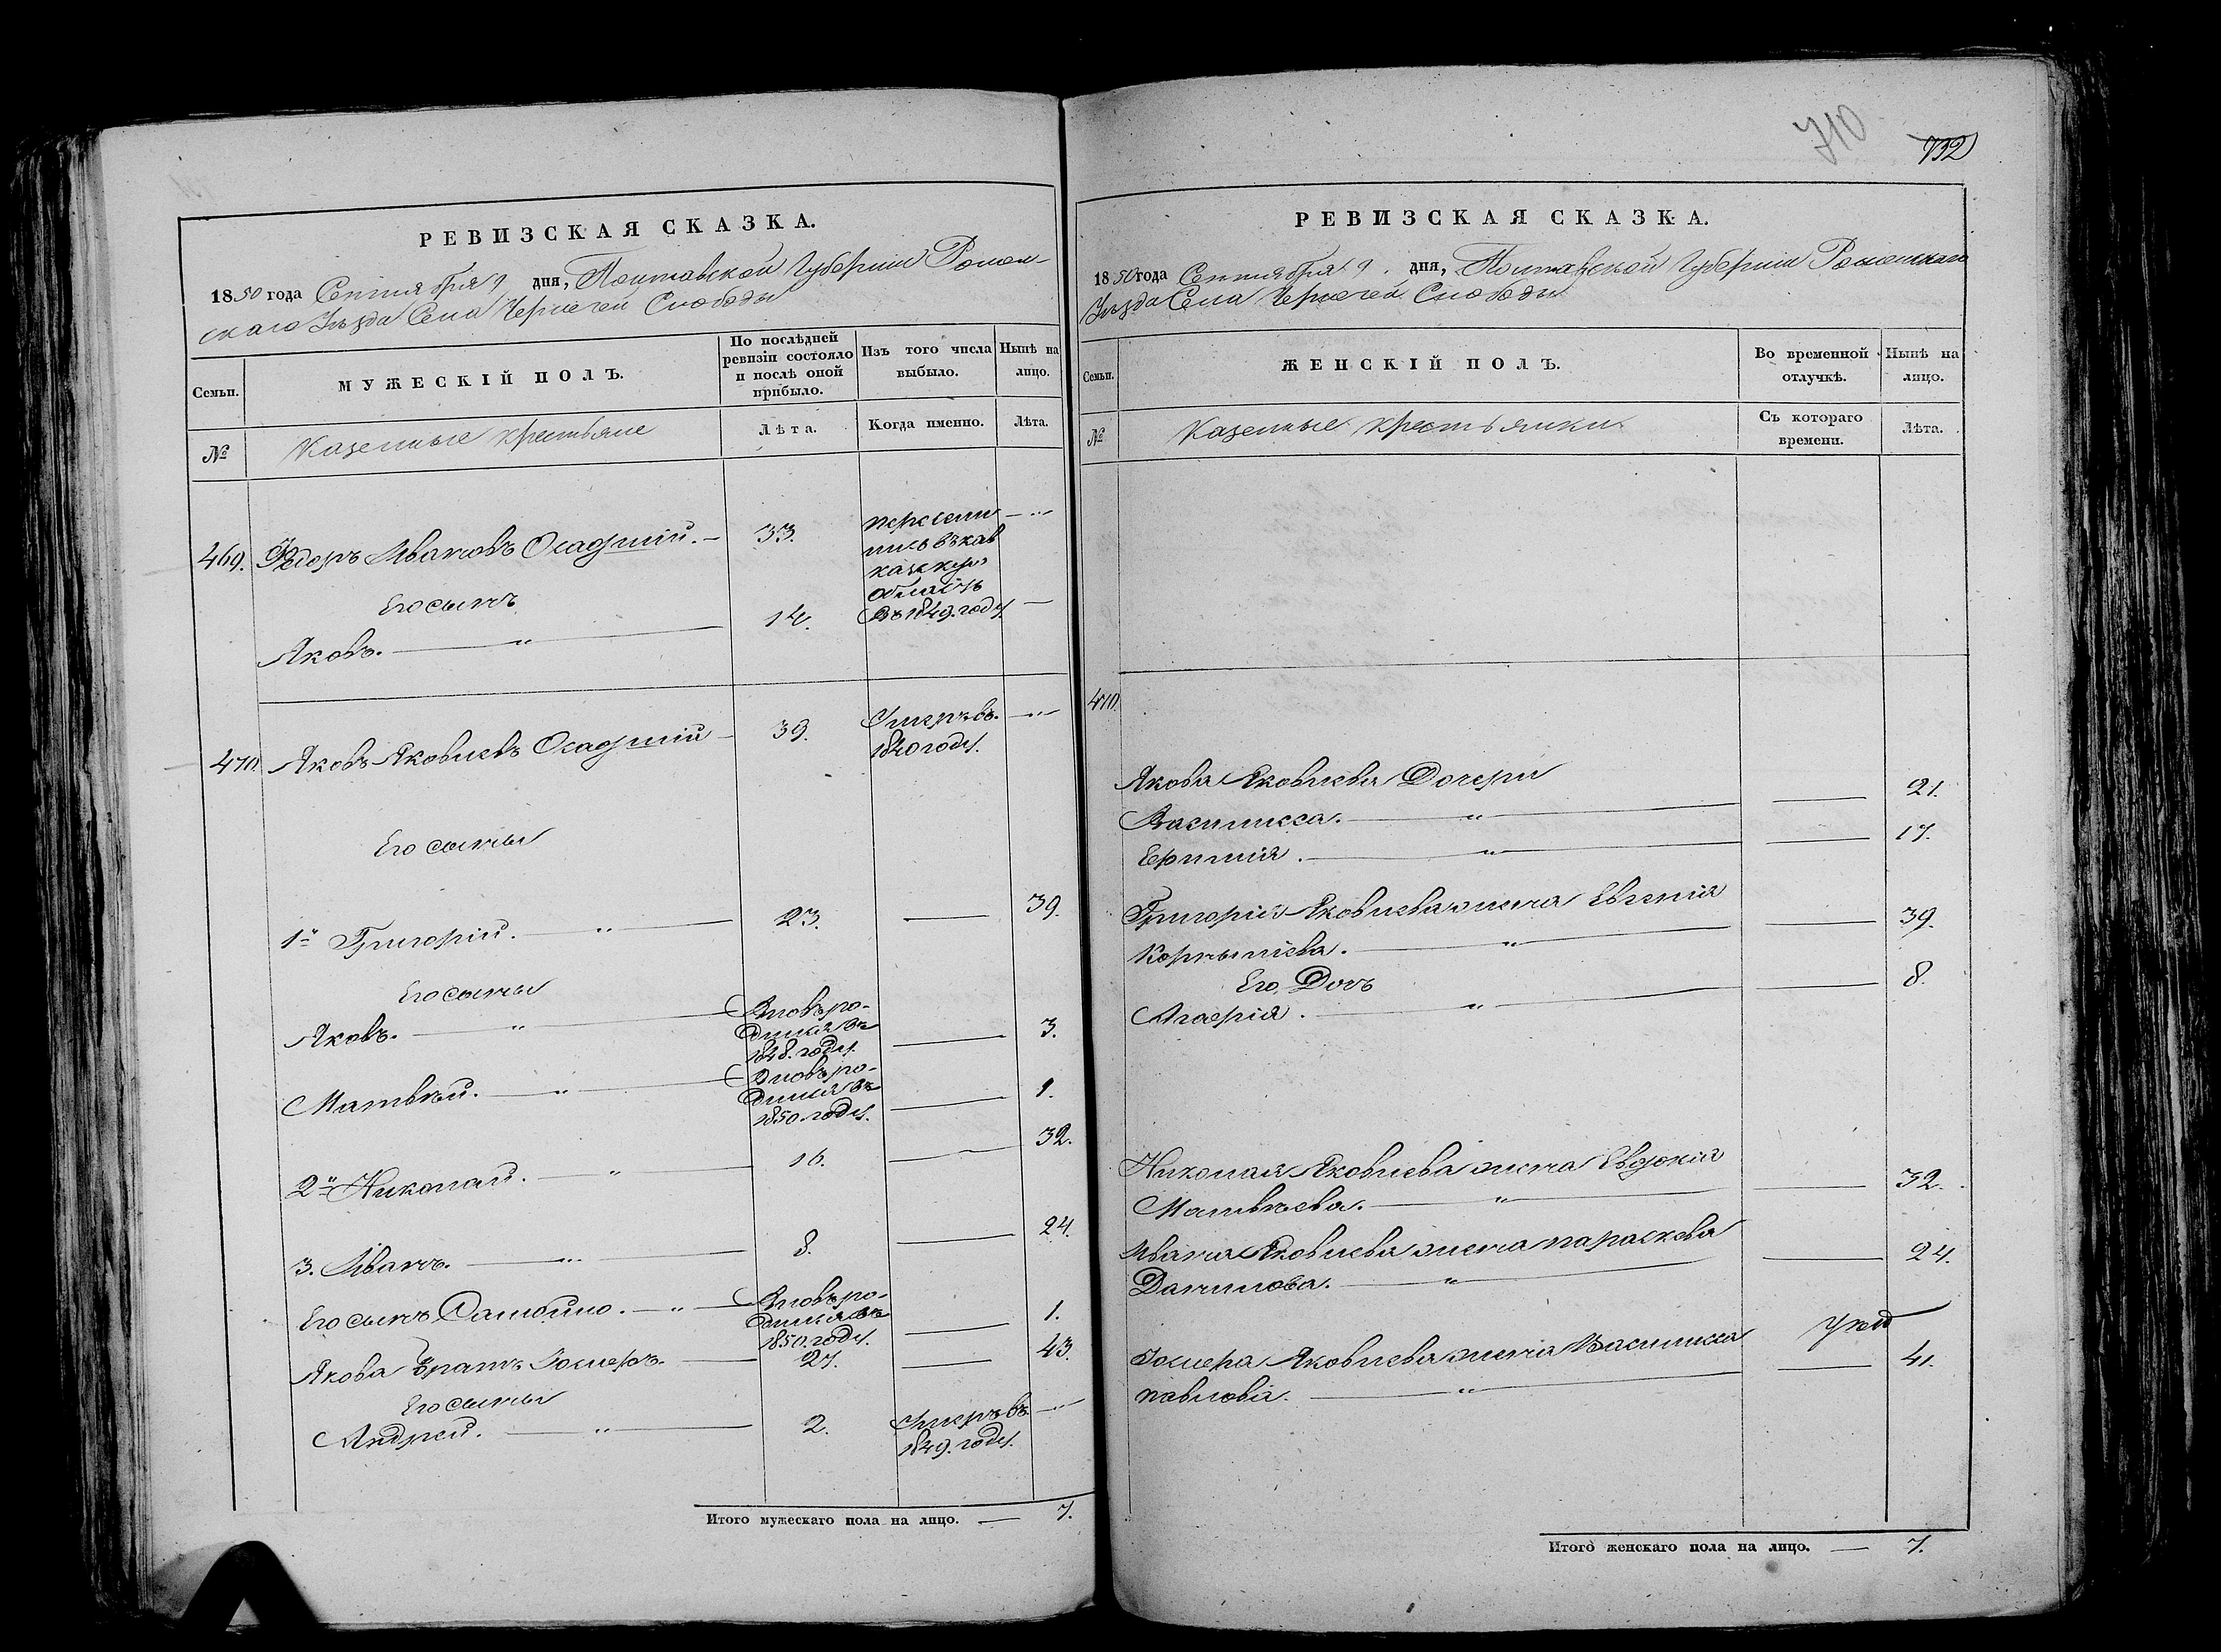 РЕВИЗСКАЯ СКАЗКА.
1850 года Сентября 9 дня, Полтавской Губернии Ромен-
скаго Уѣзда Села Чернечей Слободы
Семьи.
МУЖЕСКІЙ ПОЛЪ.
По послѣдней ревизіи состояло и послѣ оной прибыло.
Изъ того числа выбыло.
Нынѣ на лицо.
№
Казенные крестьяне
Лѣта.
Когда именно.
Лѣта.
469. Фѣдоръ Ивановъ Осадчій. — 33. пересели — "
лись въ кав
казскую
область
Его сынъ
Яковъ. — " — 14. въ 1849. году. —
470. Яковъ Яковлевъ Осадчій — 39. Умеръ въ — "
1840 году.
Его сыны
1й Григорій. — " — 23. — 39.
Его сыны
Яковъ. — " — Вновь ро-
дился въ
1848. году. — 3.
Матвѣй. — " — Вновь ро-
дился въ
1850. году. — 1.
2й Николай. — " — 16. — 32.
3. Иванъ. — " — 8. — 24.
Его сынъ — " — Вновь ро-
дился въ
1850. году. — 1.
Якова братъ — 27. — 43.
Его сыны
Андрей. — " — 2. Умеръ въ — "
1849. году.
Итого мужескаго пола на лицо. — 7.
710
732
РЕВИЗСКАЯ СКАЗКА.
1850 года Сентября 9. дня, Полтавской Губерніи Роменскаго
Уѣзда Села Чернечей Слободы
Семьи.
ЖЕНСКІЙ ПОЛЪ.
Во временной отлучкѣ.
Нынѣ на лицо.
№
Казенные крестьянки.
Съ котораго времени.
Лѣта.
470.
Якова Яковлева Дочери
Василисса. — " — 21.
— " — 17.
Григорія Яковлева жена Евгенія
Корнѣліева. — " — 39.
Его Дочь
— " — 8.
Николая Яковлева жена Евдокія
Матвѣева. — " — 32.
Ивана Яковлева жена параскева
Данилова. — " — 24.
Яковлева жена Василисса
павлова. — " — 41.
Итого женскаго пола на лицо. — 7.